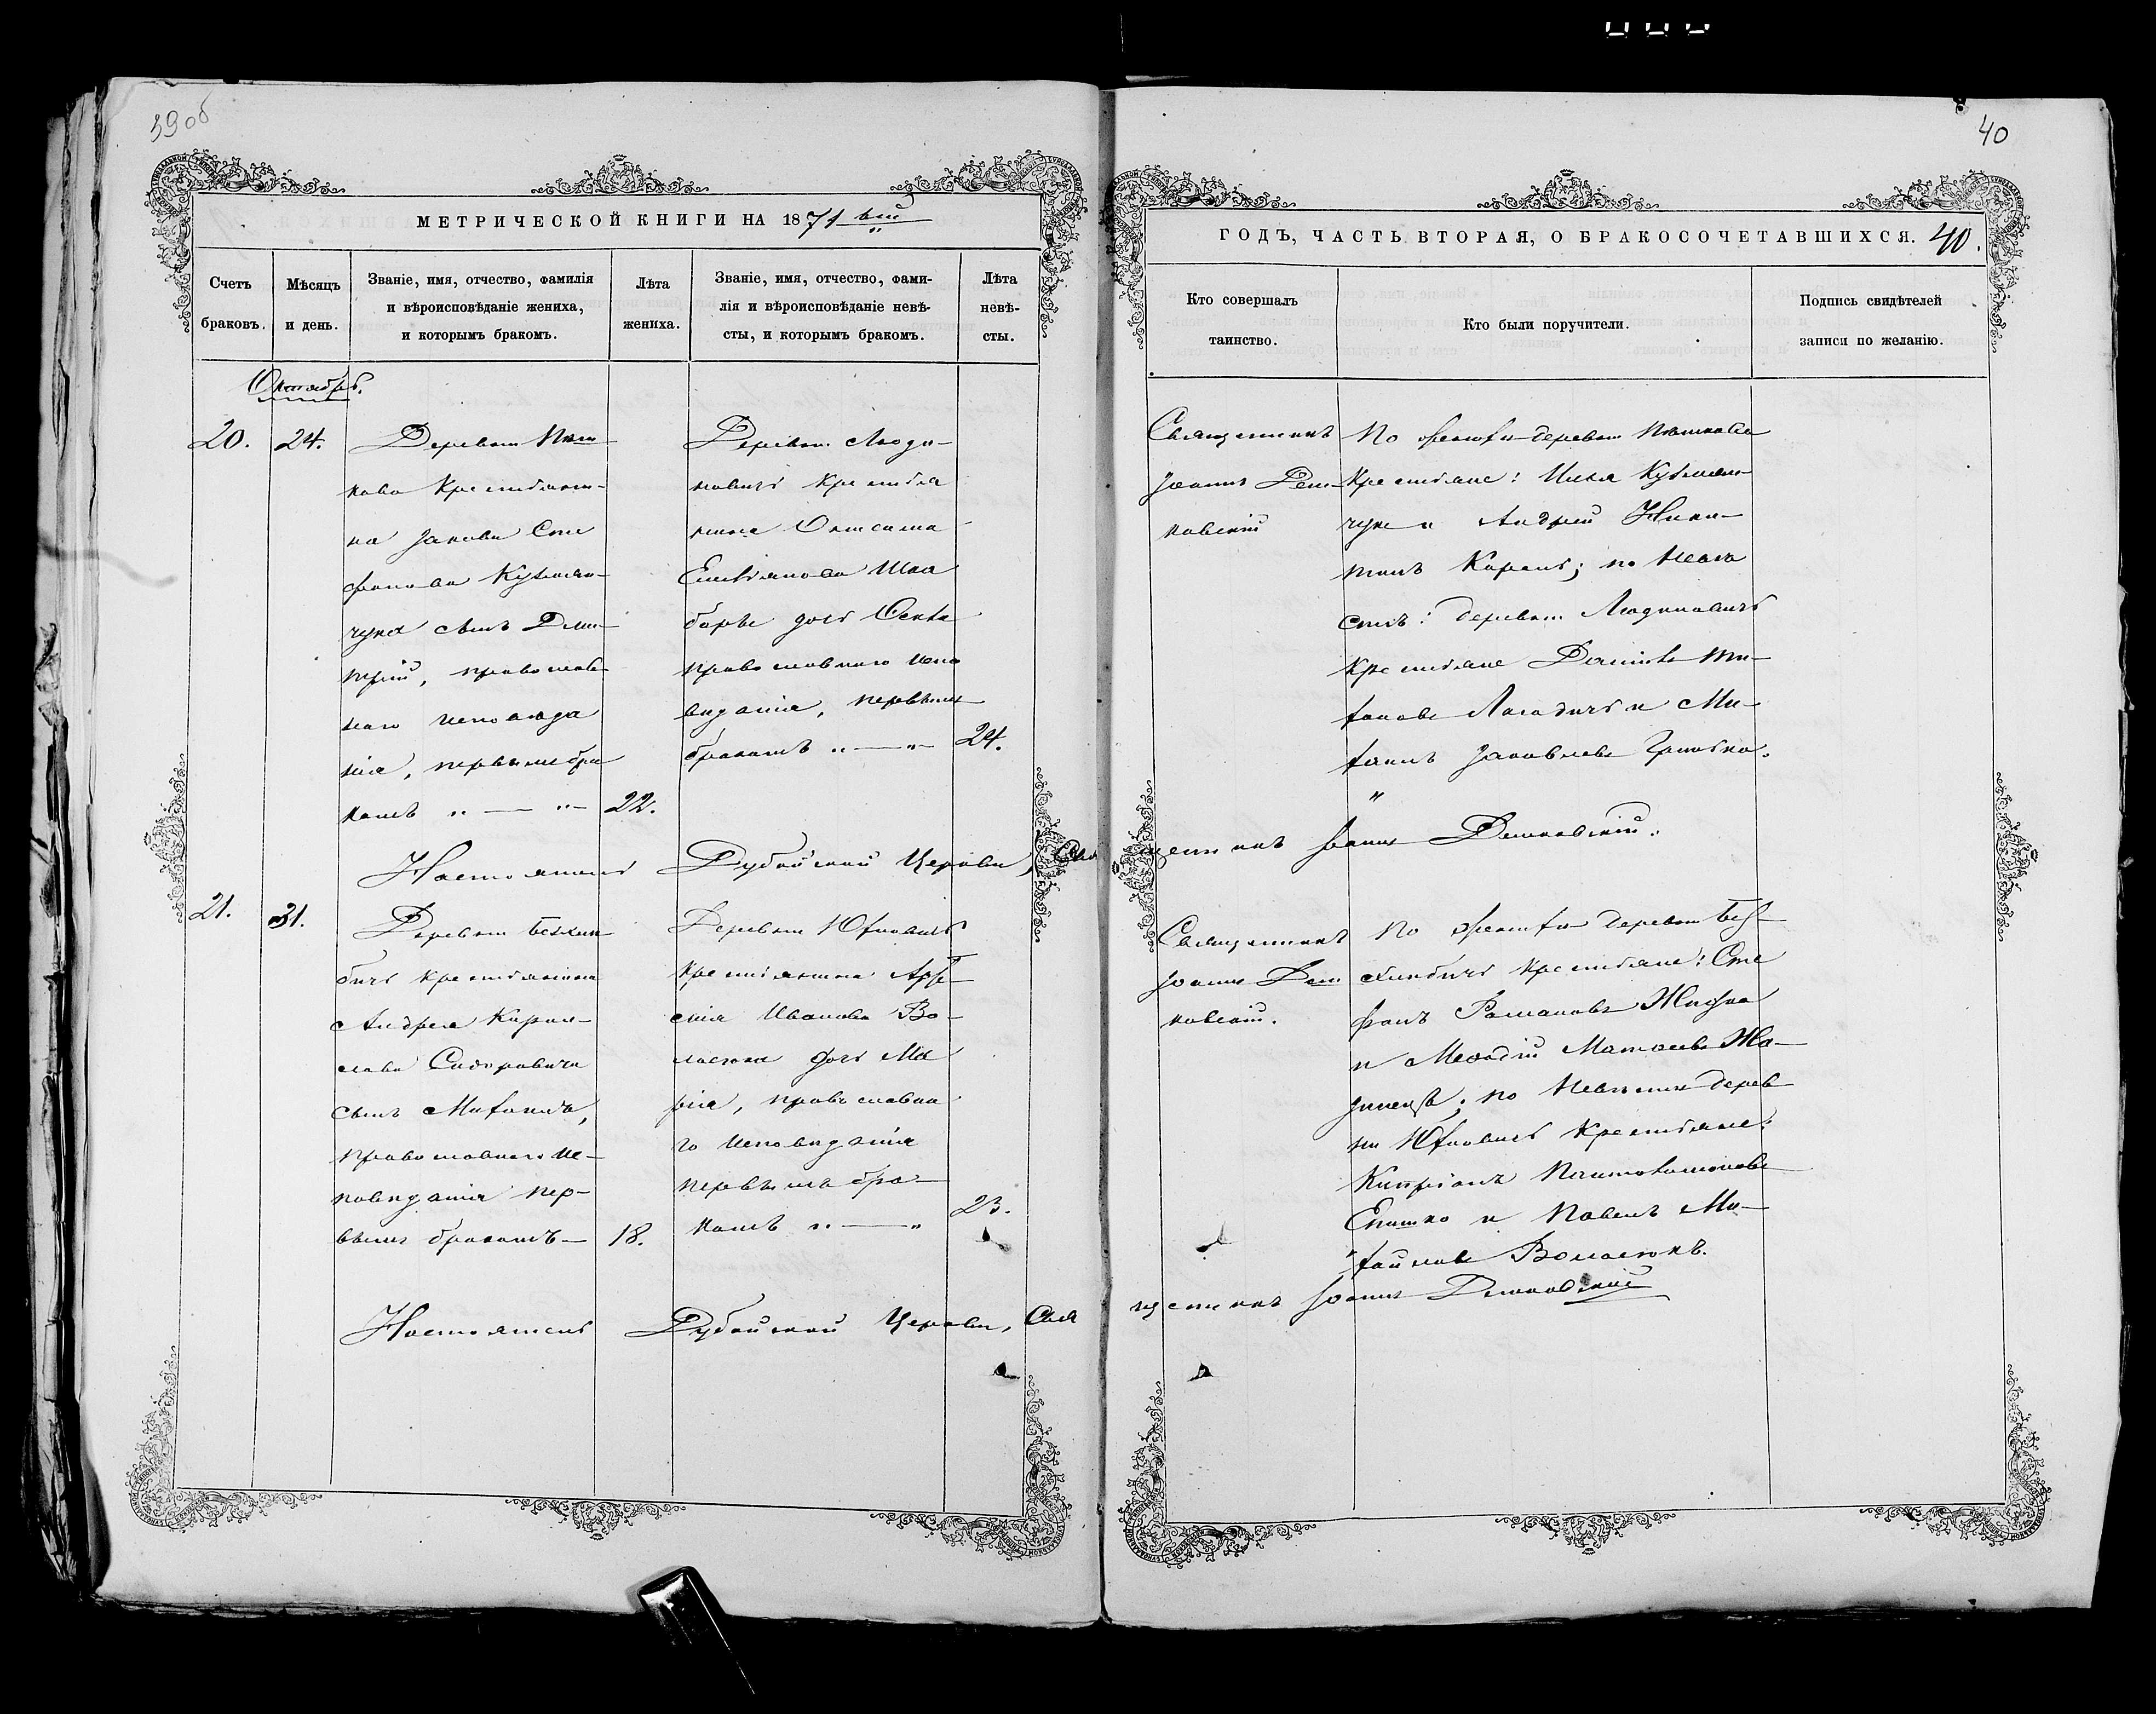 39 об
40
МЕТРИЧЕСКОЙ КНИГИ НА 1871 вый
Счетъ браковъ.
Мѣсяцъ и день.
Званіе, имя, отчество, фамилія
и вѣроисповѣданіе жениха,
и которымъ бракомъ.
Лѣта жениха.
Званіе, имя, отчество, фами-
лія и вѣроисповѣданіе невѣ-
сты, и которымъ бракомъ.
Лѣта невѣ-
сты.
Октябрь.
20.
24.
Деревни
кова Крестьяни-
на Іакова Сте
фанова Кузмин-
чука сынъ Дми-
трій, православ
наго исповѣда
нія, первымъ бра
комъ „ — „ — 22.
Деревни Люди-
новичъ Крестья
нина Онисима
Емельянова Шка
барѣ дочь Ѳекла
православнаго испо
вѣданія, первымъ
бракомъ „ — „ 24.
Настоятель Дубойской Церкви, Свя
21.
31.
Деревни Безхле
бичъ крестьянина
Андрея Кирил-
лова Сидоровича
сынъ Михаилъ,
православнаго ис-
повѣданія пер-
вымъ бракомъ — 18.
Деревни
крестьянина Арсе
нія Иванова Во-
ласюка дочь Ма
рія, православна
го исповѣданія
первымъ бра-
комъ „ — „ 23.
Настоятель Дубойской Церкви, Свя
ГОДЪ, ЧАСТЬ ВТОРАЯ, О БРАКОСОЧЕТАВШИХСЯ. 40.
Кто совершалъ
таинство.
Кто были поручители.
Подпись свидѣтелей
записи по желанію.
Священникъ
Іоаннъ
ковскій
По женихѣ деревни
Крестьяне: Илья Кузмин-
чукъ и Андрей Ники-
тинъ Корень; по невѣ
стѣ: деревни Людиновичъ
Крестьяне Даніилъ Ти-
хановъ и Ми-
хаилъ Іаковлевъ
щенникъ Іоаннъ
Священникъ
Іоаннъ
ковскій.
По женихѣ деревни Без-
хлебичъ крестьяне: Сте
фанъ Романовъ
и Меѳодій Матѳеевъ
по невѣстѣ дерев
ни крестьяне:
Кипріанъ Пантелимоновъ
и Павелъ Ми-
хайловъ Воласюкъ.
щенникъ Іоаннъ